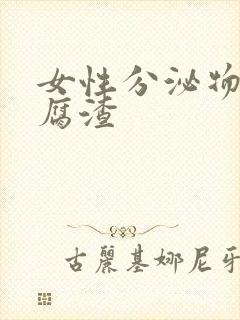 女性分泌物
腐渣
古丽基娜尼牙